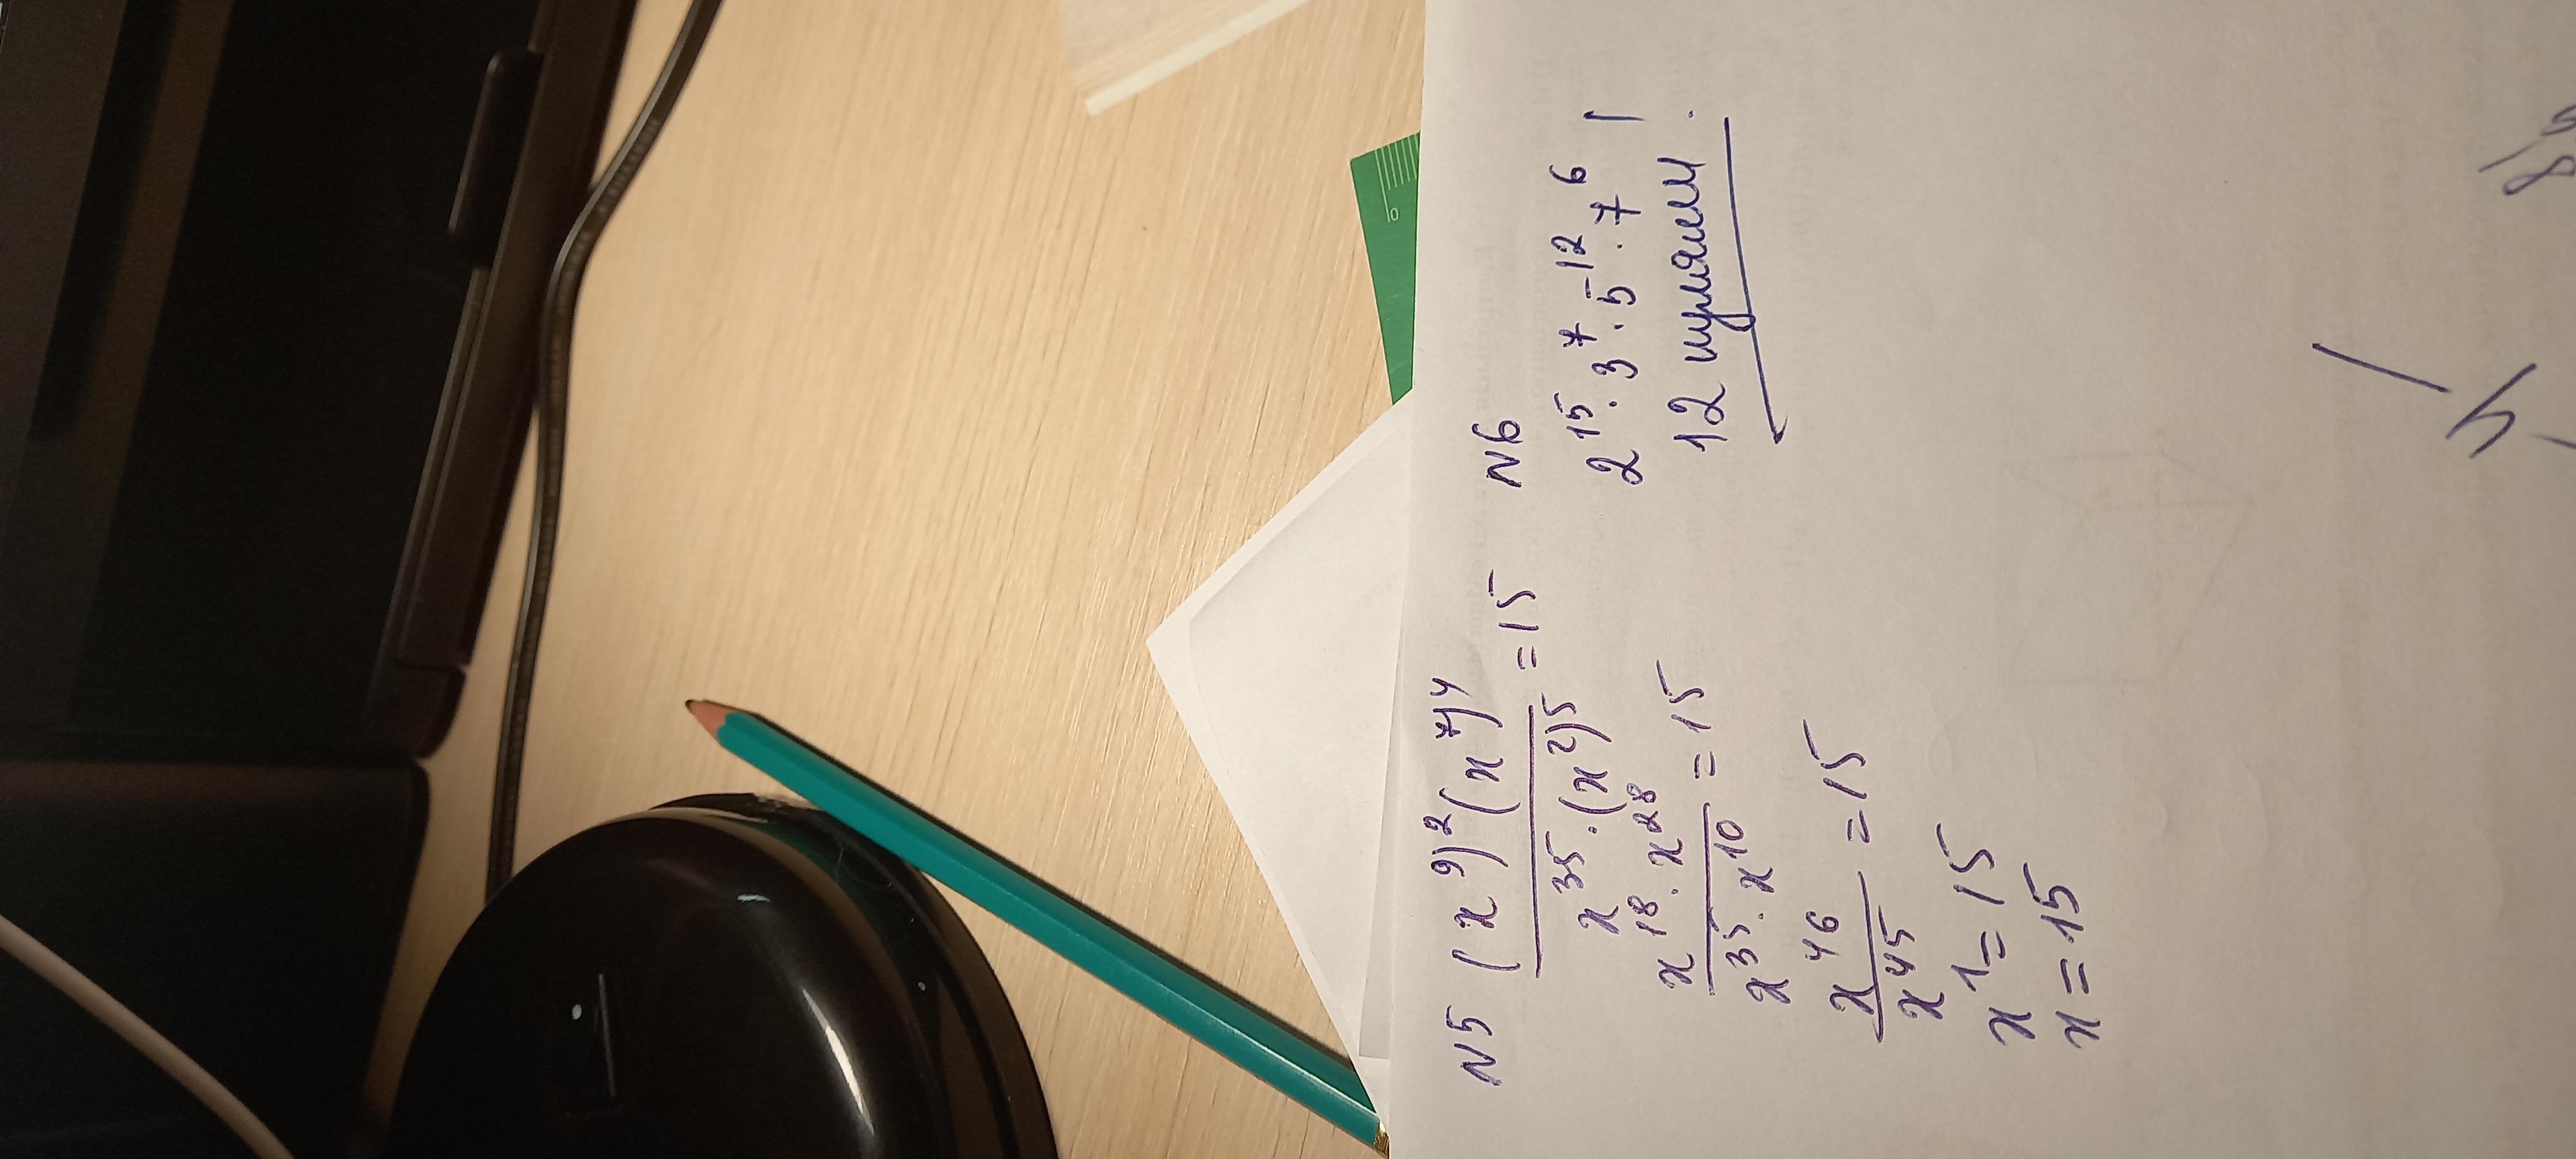 N5 (x⁹)²(x⁷)⁴ / x³⁵ · (x²)⁵ = 15
x¹⁸ · x²⁸ / x³⁵ · x¹⁰ = 15
x⁴⁶ / x⁴⁵ = 15
x¹ = 15
x = 15
N6
2¹⁵ · 3⁷ · 5¹² · 7⁶
12 нулями.
0